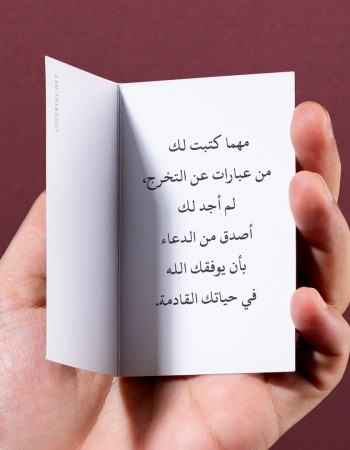 مهما كتبت لك
من عبارات عن التخرج،
لم أجد لك
أصدق من الدعاء
بأن يوفقك الله
في حياتك القادمة.
LUXURYAY.NET